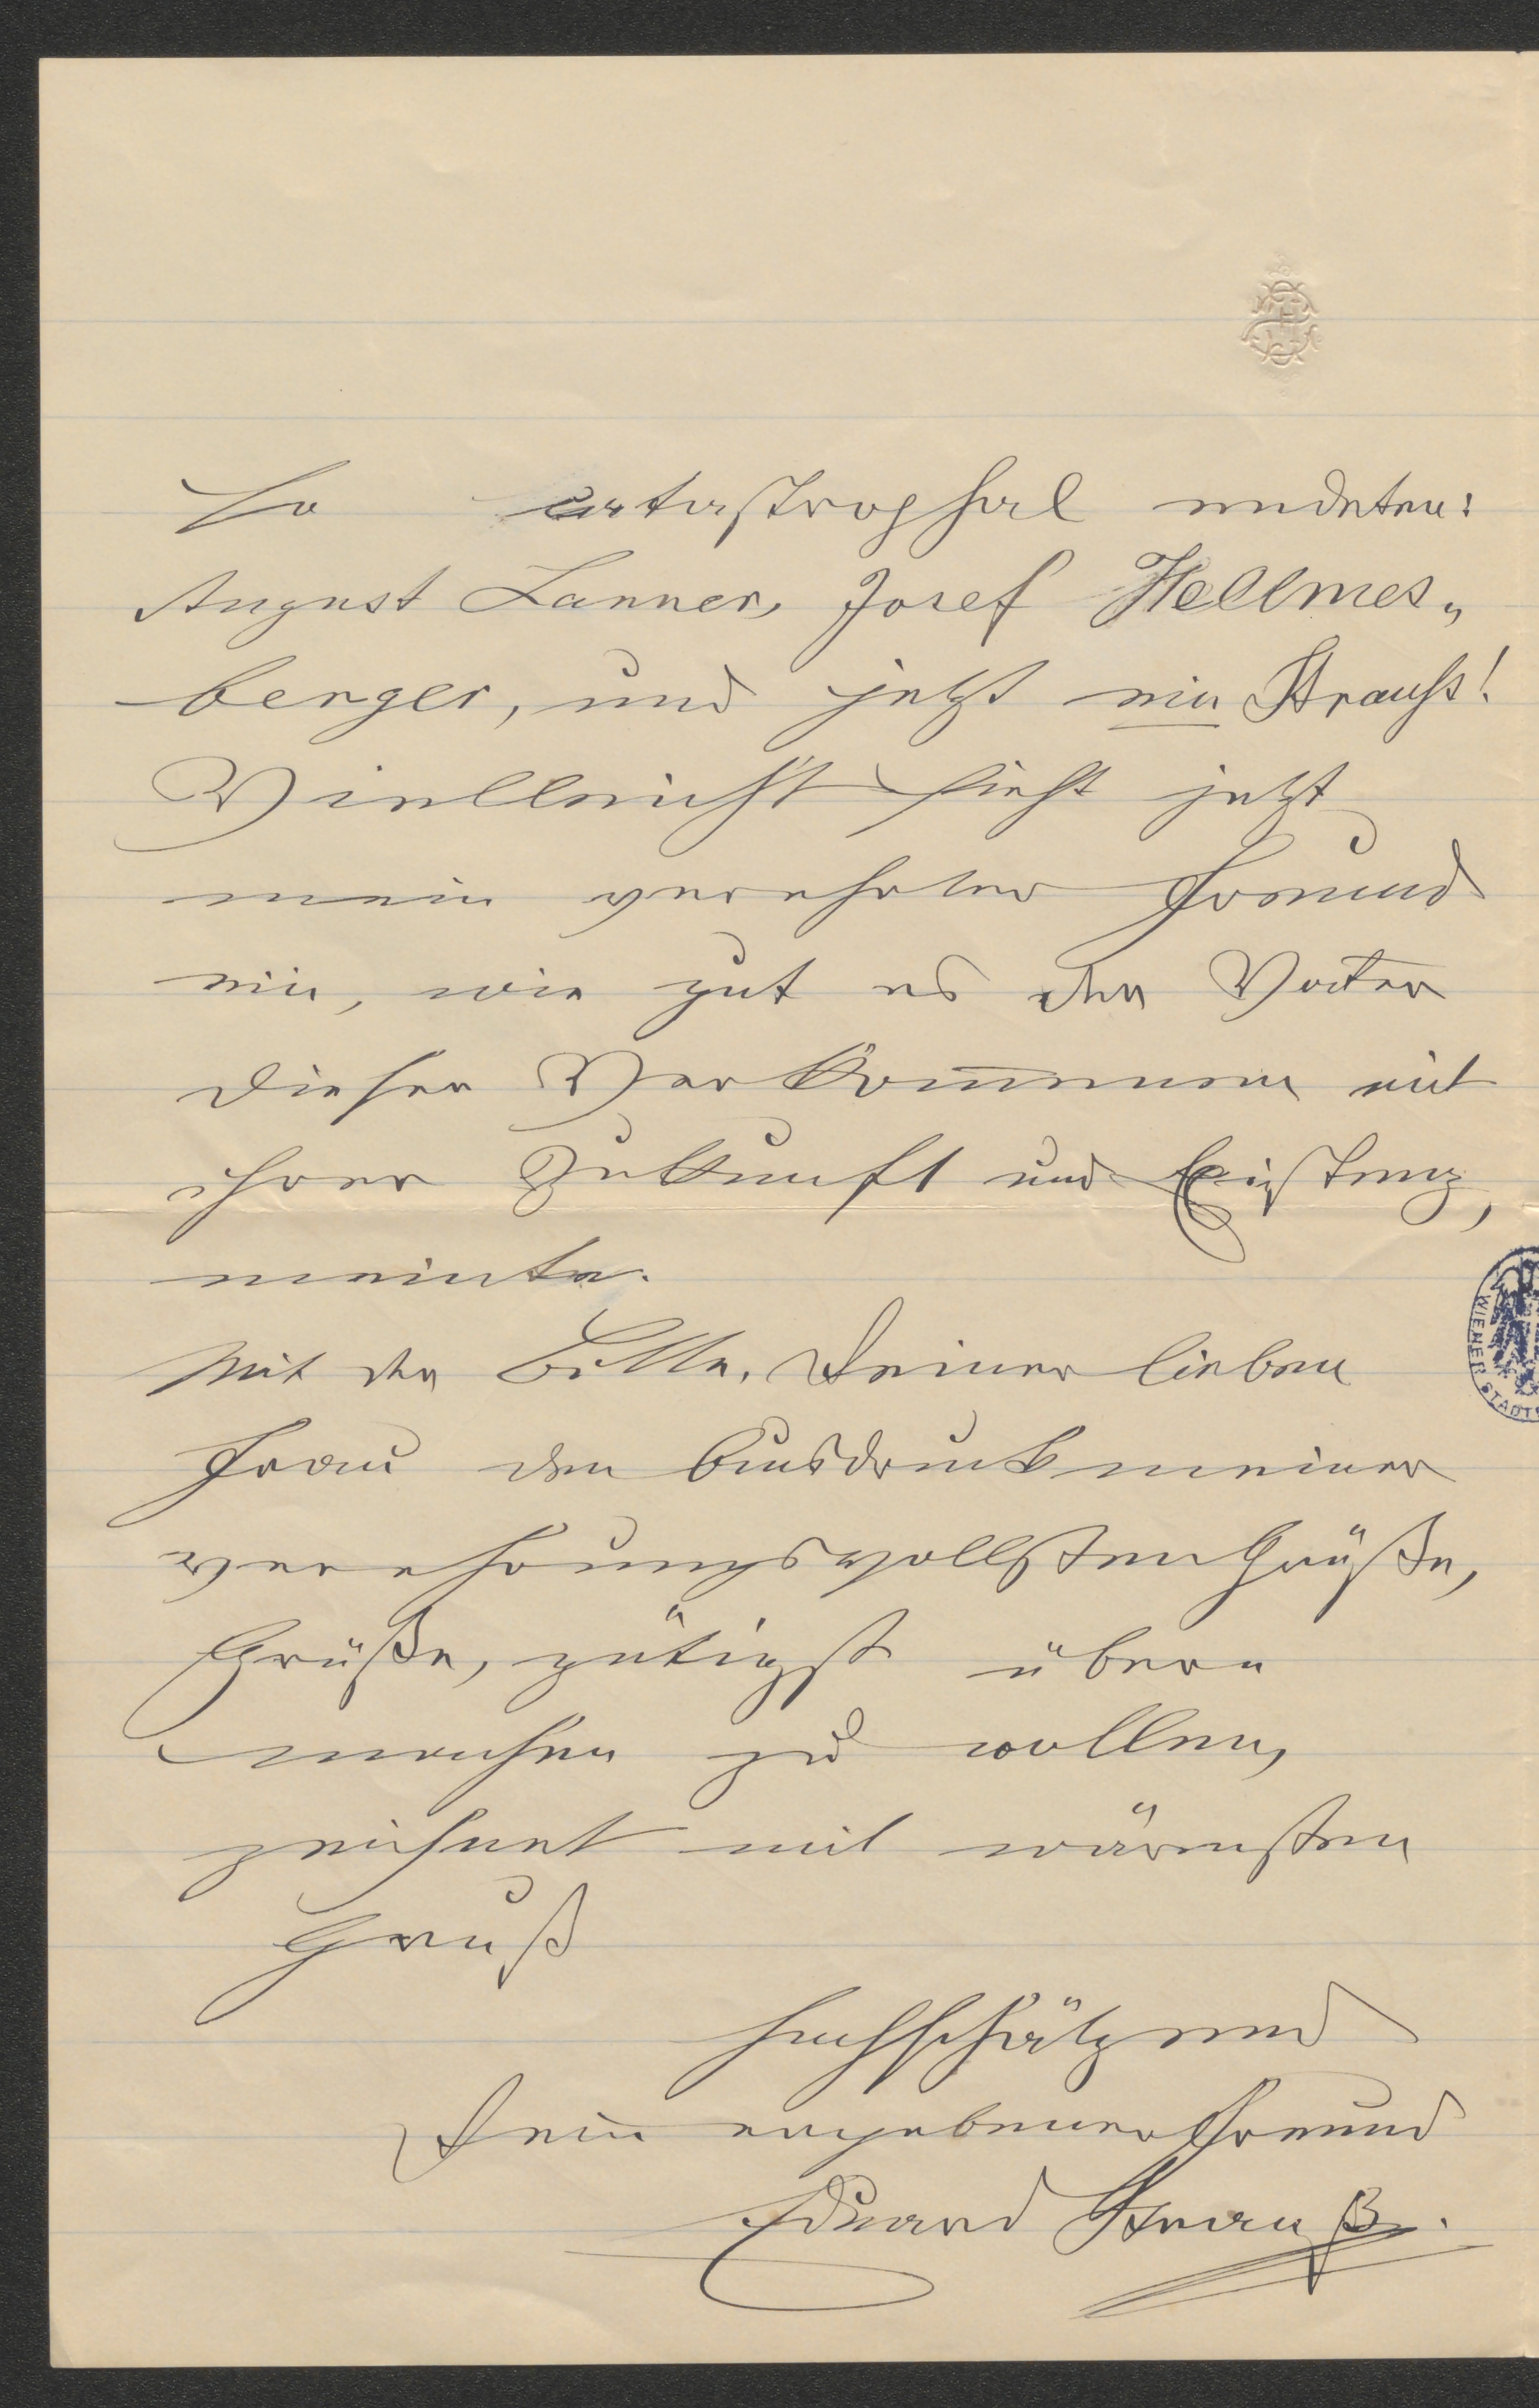 So catastrophal endeten:
August Lanner, Josef Hellmes„
berger, und jetzt ein Strauss!
Vielleicht sieht jetzt
mein verehrter Freund
ein, wie gut es der Vater
dieser Verkommenen mit
ihrer Zukunft und Existenz,
meinte.
Mit der Bitte, Deiner lieben
Frau den Ausdruck meiner
verehrungsvollsten Grüße,
Grüße, gütigst über„
machen zu wollen,
zeichnet mit wärmsten
Gruß
hochschätzend
Dein ergebener Freund
Eduard Strauß.
WIENER STADT